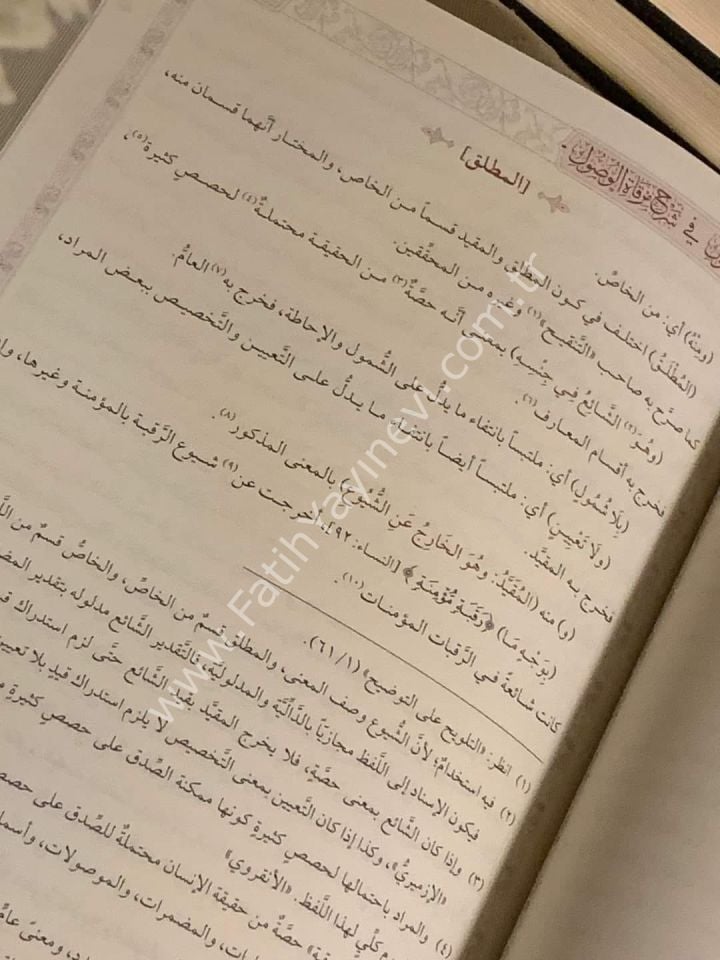 في شرح مرقاة الوصول
[المطلق]
(ومِنْهُ) أي: من الخاصِّ.
(المُطْلَقُ) اختلف في كون المطلق والمقيد قسماً من الخاص، والمختار أنَّهما قسمان منه،
كما صرَّح به صاحب «التَّنقيح»(١) وغيره من المحقِّقين.
(وهُوَ(٢) الشَّائِعُ فِي جِنْسِهِ) بمعنى أنَّه حصَّةٌ(٣) من الحقيقة محتملةٌ(٤) لحصصٍ كثيرةٍ(٥)،
فخرج به أقسام المعارف(٦).
(بِلَا شُمُولٍ) أي: ملتبساً بانتفاء ما يدلُّ على الشُّمول والإحاطة، فخرج به(٧) العامُّ.
(ولَا تَعْيِينٍ) أي: ملتبساً أيضاً بانتفاء ما يدلُّ على التَّعيين والتَّخصيص ببعض المراد،
فخرج به المقيَّد.
(و) منه (المُقَيَّدُ: وهُوَ الخَارِجُ عَنِ الشُّيُوعِ) بالمعنى المذكور(٨).
(بِوَجْهٍ مَا) ﴿رَقَبَةٍ مُّؤْمِنَةٍ﴾ [النساء: ٩٢]، أخرجت عن(٩) شيوع الرَّقبة بالمؤمنة وغيرها،
كانت شائعةً في الرَّقبات المؤمنات(١٠).
(١) انظر: «التلويح على التوضيح» (٦١/١).
(٢) فيه استخدامٌ؛ لأنَّ الشُّيوع وصف المعنى، والمطلق قسمٌ من الخاصِّ، والخاصُّ قسمٌ من
فيكون الإسناد إلى اللَّفظ مجازيّاً بالدَّالِّيَّة والمدلوليَّة، فالتَّقدير الشَّائع مدلوله بتقدير
(٣) وإذا كان الشَّائع بمعنى حصَّةٍ، فلا يخرج المقيَّد بقيد الشَّائع حتَّى لزم استدراك
«الإزميريُّ»، وكذا إذا كان التَّعيين بمعنى التَّخصيص لا يلزم استدراك قيدِ بلا تعيين
(٤) والمراد باحتمالها لحصصٍ كثيرةٍ كونها ممكنة الصِّدق على حصصٍ كثيرةٍ
كلِّي لهذا اللَّفظ. «الأنقروي»
حصَّةٌ من حقيقة الإنسان محتملةٌ للصِّدق على
والمضمرات، والموصولات،
ومعنى
www.FatihYayinevi.com.tr